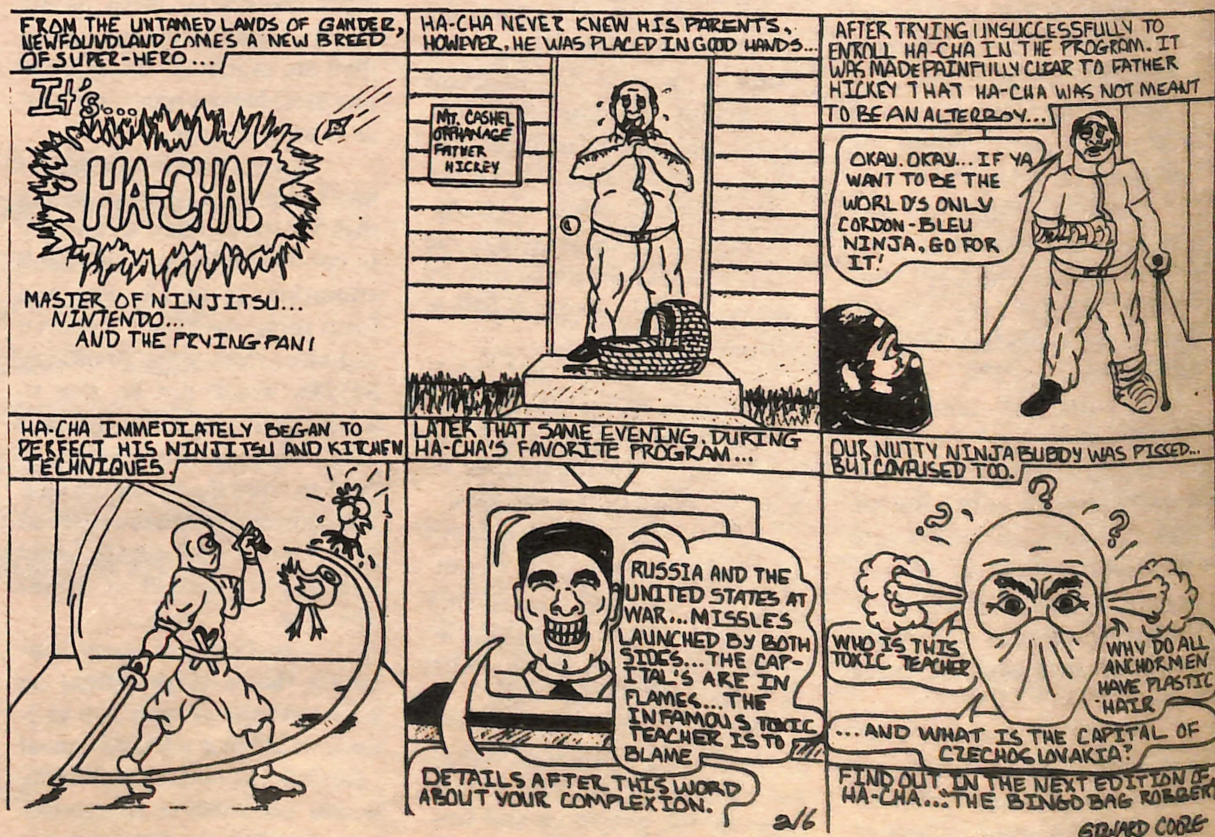 FROM THE UNTAMED LANDS OF GANDER,
NEWFOUNDLAND COMES A NEW BREED
OF SUPER-HERO...
It's....
HA-CHA!
MASTER OF NINJITSU...
NINTENDO...
AND THE FRYING PAN!
HA-CHA NEVER KNEW HIS PARENTS.
HOWEVER, HE WAS PLACED IN GOOD HANDS...
MT. CASHEL
ORPHANAGE
FATHER
HICKEY
AFTER TRYING UNSUCCESSFULLY TO
ENROLL HA-CHA IN THE PROGRAM. IT
WAS MADE PAINFULLY CLEAR TO FATHER
HICKEY THAT HA-CHA WAS NOT MEANT
TO BE AN ALTERBOY...
OKAY. OKAY... IF YA
WANT TO BE THE
WORLD'S ONLY
CORDON-BLEU
NINJA. GO FOR
IT!
HA-CHA IMMEDIATELY BEGAN TO
PERFECT HIS NINJITSU AND KITCHEN
TECHNIQUES.
LATER THAT SAME EVENING, DURING
HA-CHA'S FAVORITE PROGRAM...
RUSSIA AND THE
UNITED STATES AT
WAR... MISSLES
LAUNCHED BY BOTH
SIDES... THE CAP-
ITAL'S ARE IN
FLAMES... THE
INFAMOUS TOXIC
TEACHER IS TO
BLAME
DETAILS AFTER THIS WORD
ABOUT YOUR COMPLEXION.
2/6
OUR NUTTY NINJA BUDDY WAS PISSED...
BUT CONFUSED TOO.
? ? ?
WHO IS THIS
TOXIC TEACHER
WHY DO ALL
ANCHORMEN
HAVE PLASTIC
HAIR
...AND WHAT IS THE CAPITAL OF
CZECHOSLOVAKIA?
FIND OUT IN THE NEXT EDITION OF
HA-CHA... "THE BINGO BAG ROBBERY